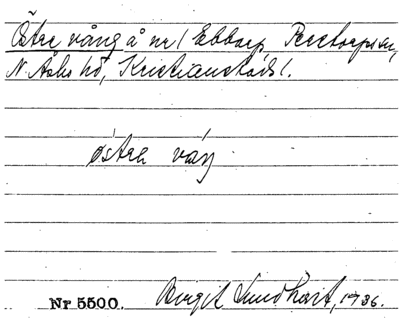 Östre vång å nr 1 Ebbarp, Perstorps sn,
N. Åsbo hd, Kristianstads l.
östra våŋ
Nr 5500. Birgit Sundhart, 1936.